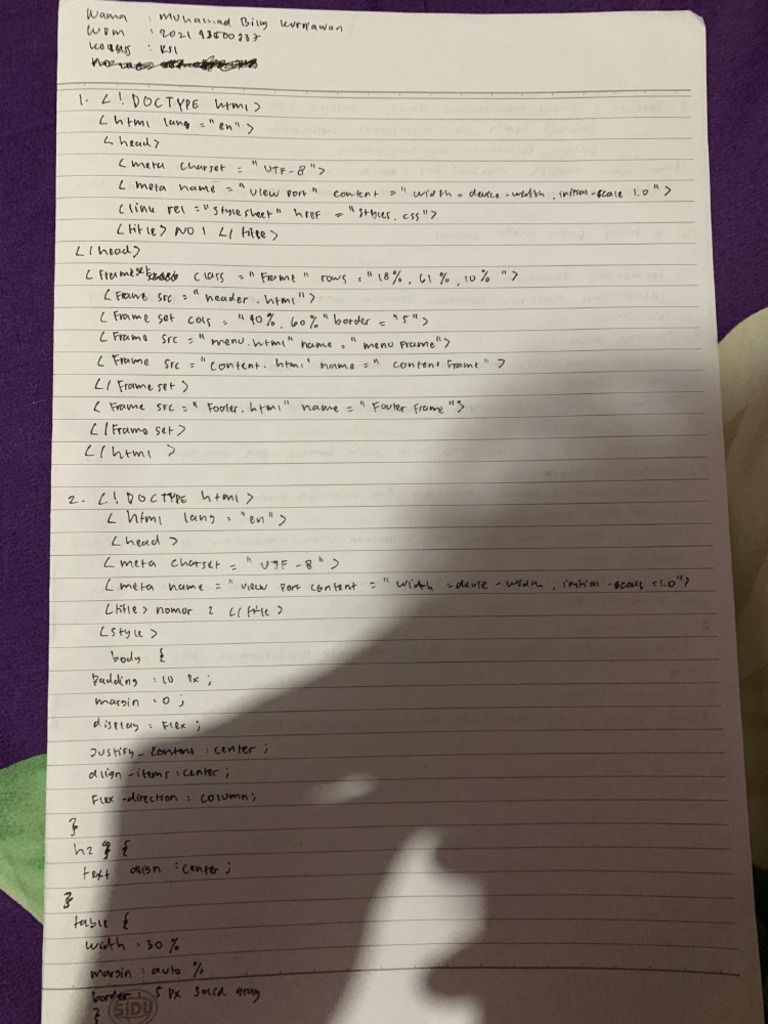 Nama : Muhamad Billy Kurniawan
NPM :
Kelas : KSI
1. <! DOCTYPE html>
< html lang = "en">
< head>
< meta charset = "UTF-8">
< meta name = "view port" content = "width = device-width, initial-scale 1.0">
< link rel = "stylesheet" href = "styles.css">
< title> NO 1 </ title>
</ head>
< Frameset class = "Frame" rows = "18%, 61%, 10% ">
< Frame src = "header.html">
< Frame set cols = "40%, 60%" border = "5">
< Frame src = "menu.html" name = "menu Frame">
< Frame src = "content.html" name = " content Frame" >
</ Frame set >
< Frame src = " Footer.html" name = " Footer Frame ">
</ Frame set>
</ html >
2. <! DOCTYPE html>
< html lang = "en">
< head >
< meta charset = " UTF-8 ">
< meta name = " view port content = " width = device-width, initial-scale =1.0">
< title > nomor 2 </ title>
< style >
body {
Padding : 10 Px ;
margin : 0 ;
display : Flex ;
Justify-content : center ;
align-items : center ;
Flex-direction : column ;
}
h2 {
text align : center ;
}
table {
width : 30 %
margin : auto %
border : 5 Px solid gray
}
SIDU